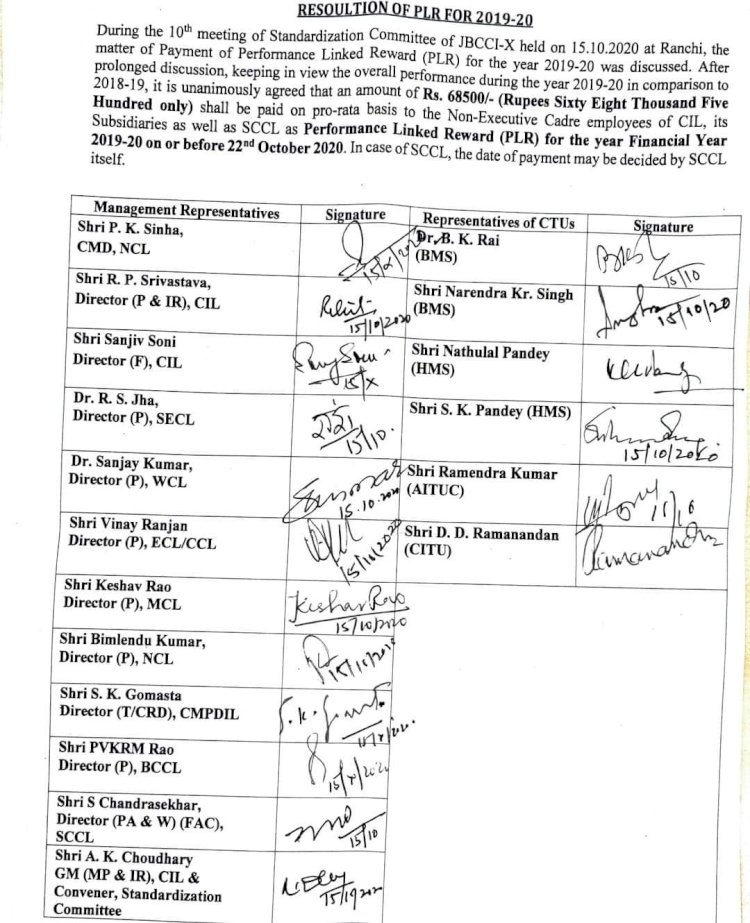 RESOULTION OF PLR FOR 2019-20
During the 10th meeting of Standardization Committee of JBCCI-X held on 15.10.2020 at Ranchi, the
matter of Payment of Performance Linked Reward (PLR) for the year 2019-20 was discussed. After
prolonged discussion, keeping in view the overall performance during the year 2019-20 in comparison to
2018-19, it is unanimously agreed that an amount of Rs. 68500/- (Rupees Sixty Eight Thousand Five
Hundred only) shall be paid on pro-rata basis to the Non-Executive Cadre employees of CIL, its
Subsidiaries as well as SCCL as Performance Linked Reward (PLR) for the year Financial Year
2019-20 on or before 22nd October 2020. In case of SCCL, the date of payment may be decided by SCCL
itself.
Management Representatives Signature Representatives of CTUs Signature
Shri P. K. Sinha, Dr. B. K. Rai
CMD, NCL (BMS)
15/10
Shri R. P. Srivastava, Shri Narendra Kr. Singh
Director (P & IR), CIL (BMS)
15/10/2020 15/10/20
Shri Sanjiv Soni Shri Nathulal Pandey
Director (F), CIL (HMS)
15/X
Dr. R. S. Jha, Shri S. K. Pandey (HMS)
Director (P), SECL
15/10. 15/10/2020
Dr. Sanjay Kumar, Shri Ramendra Kumar
Director (P), WCL (AITUC)
15.10.2020
Shri Vinay Ranjan Shri D. D. Ramanandan
Director (P), ECL/CCL (CITU)
15/10/2020 Ramanandan
Shri Keshav Rao
Director (P), MCL
Keshav Rao
15/10/2020
Shri Bimlendu Kumar,
Director (P), NCL
Shri S. K. Gomasta
Director (T/CRD), CMPDIL
Shri PVKRM Rao
Director (P), BCCL
15/X/202
Shri S Chandrasekhar,
Director (PA & W) (FAC),
SCCL
15/10
Shri A. K. Choudhary
GM (MP & IR), CIL &
Convener, Standardization
Committee